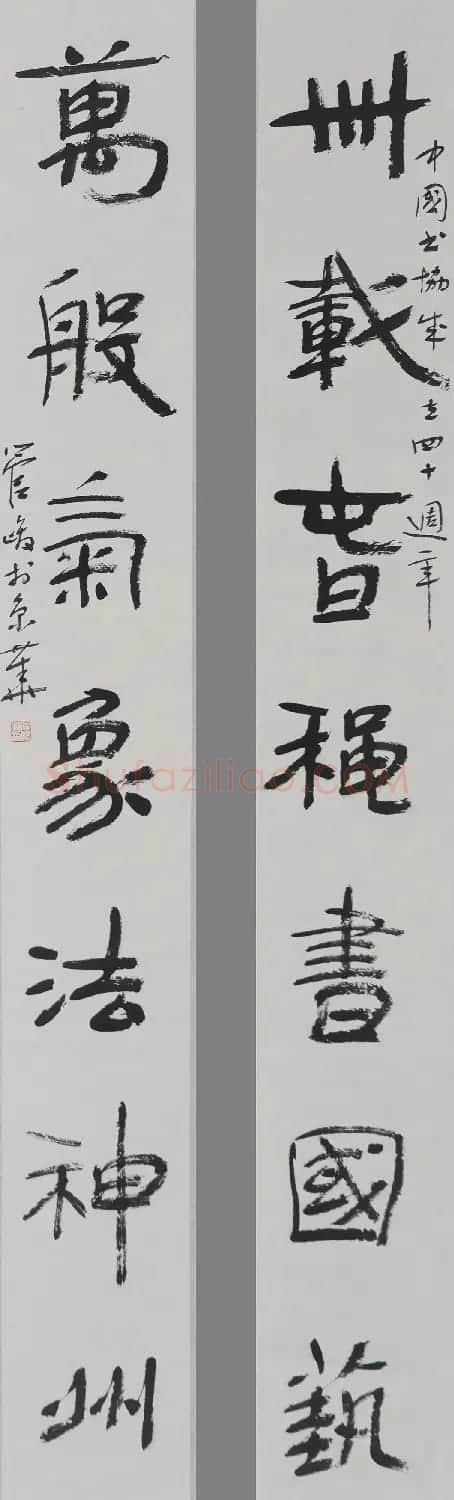 卌載旾穐書國藝
中國书協成立四十週年
萬般氣象法神州
管峻於京華
Shufaziliao.COM